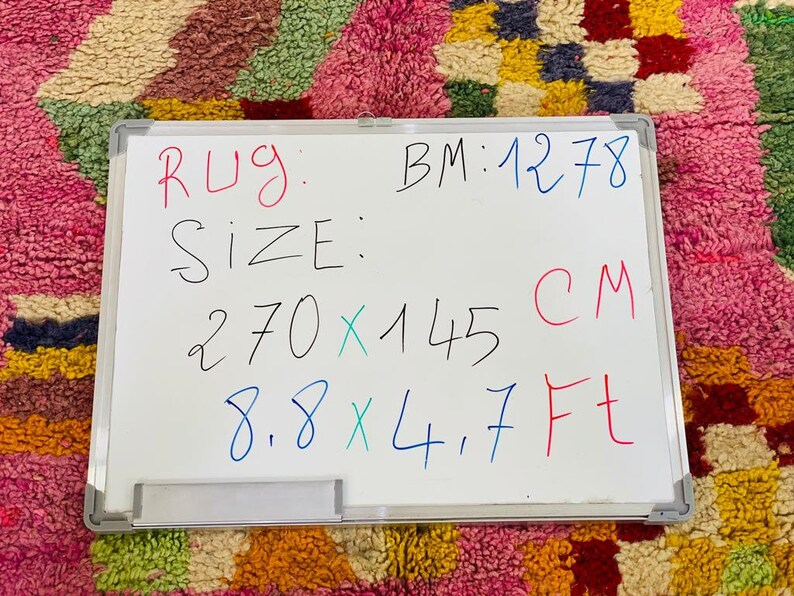 RUg: BM: 1278
SiZE:
270 x 145 CM
8.8 x 4.7 Ft